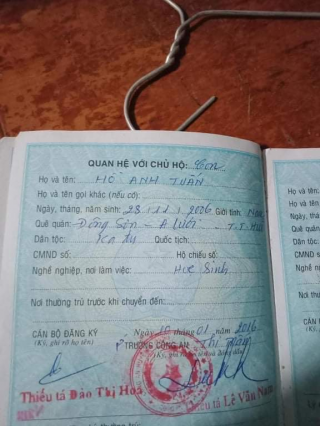 QUAN HỆ VỚI CHỦ HỘ: Con
Họ và tên: HỒ ANH TUẤN
Họ và tên gọi khác (nếu có):
Ngày, tháng, năm sinh: 28 / 11 / 2006 Giới tính: Nam
Quê quán: Đông Sơn - A Lưới - T.T. Huế
Dân tộc: Quốc tịch:
CMND số: Hộ chiếu số:
Nghề nghiệp, nơi làm việc: Học Sinh
Nơi thường trú trước khi chuyển đến:
Ngày 16 tháng 01 năm 2016
CÁN BỘ ĐĂNG KÝ TRƯỞNG CÔNG AN
(Ký, ghi rõ họ tên) (Ký, ghi rõ họ tên
Thiếu tá Đào Thị Hoa Thiếu tá Lê Văn Nam
Họ và tên:
Họ và tên
Ngày, thán
Quê quán:
Dân tộc:
CMND số:
Nghề nghiệ
Nơi thường
CÁN BỘ
(Ký, ghi